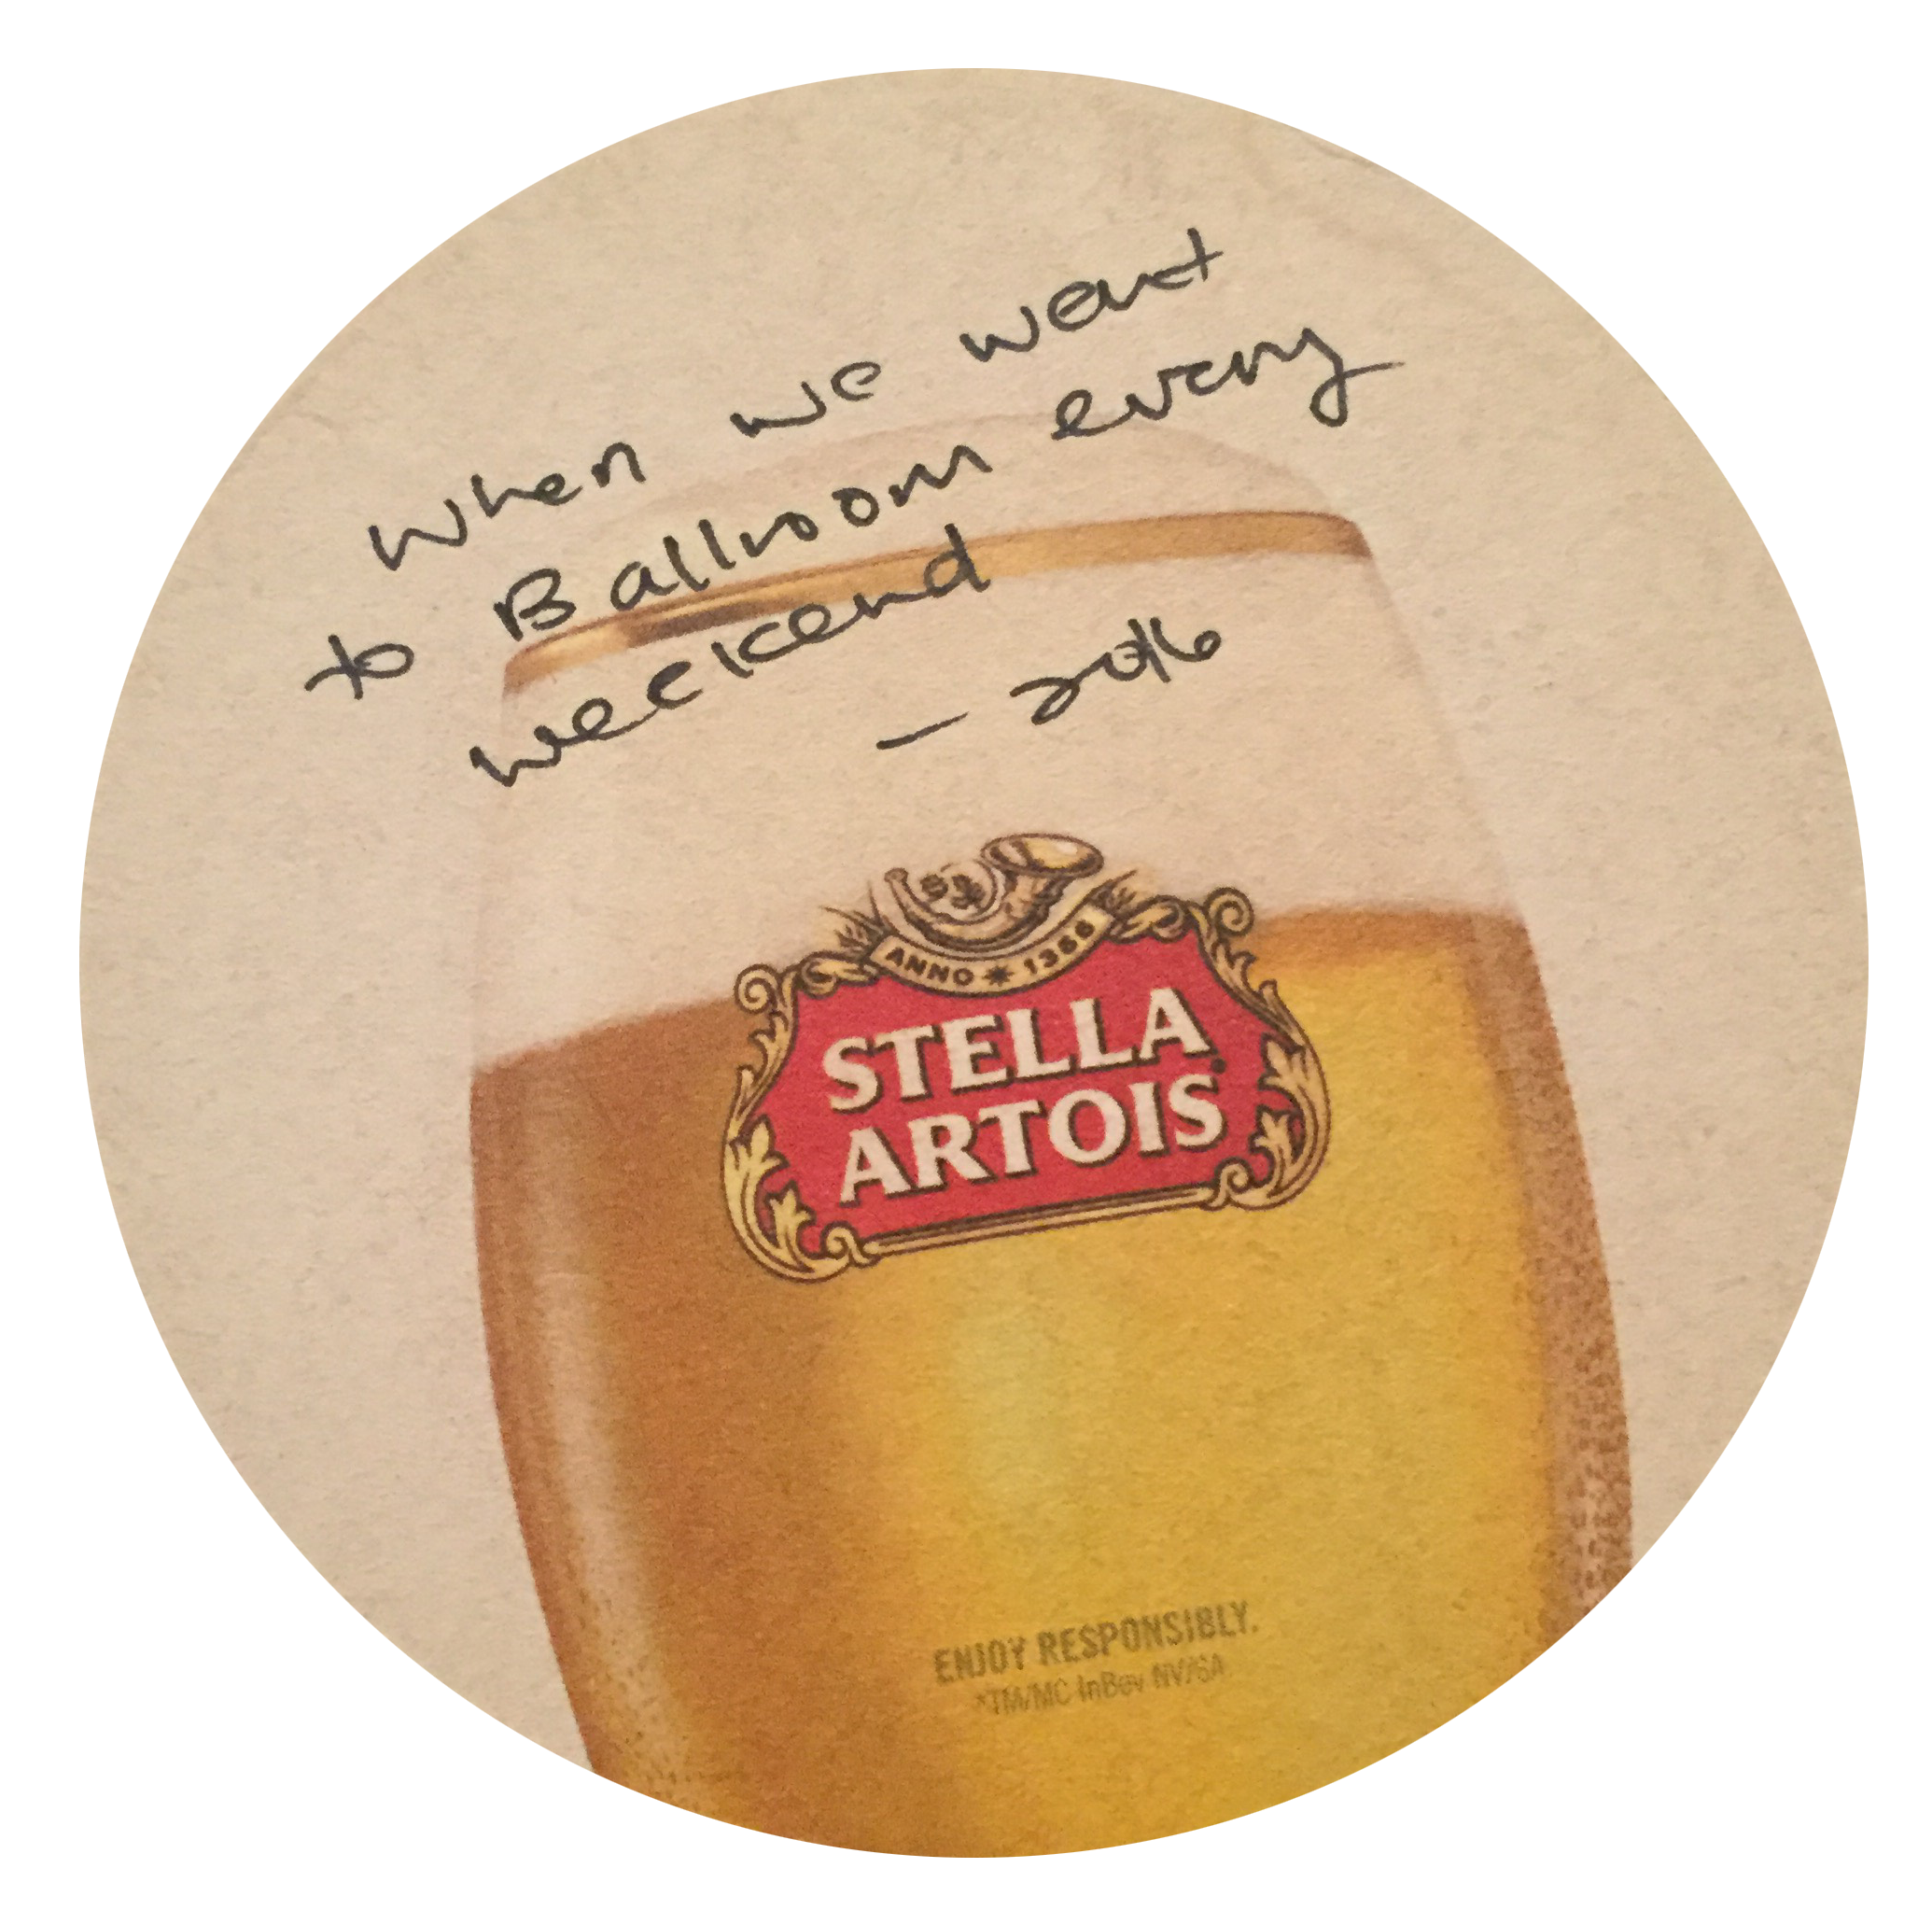 When we went
to Ballroom every
weekend
- 2016
ANNO * 1366
STELLA
ARTOIS
ENJOY RESPONSIBLY.
*TM/MC InBev NV/SA